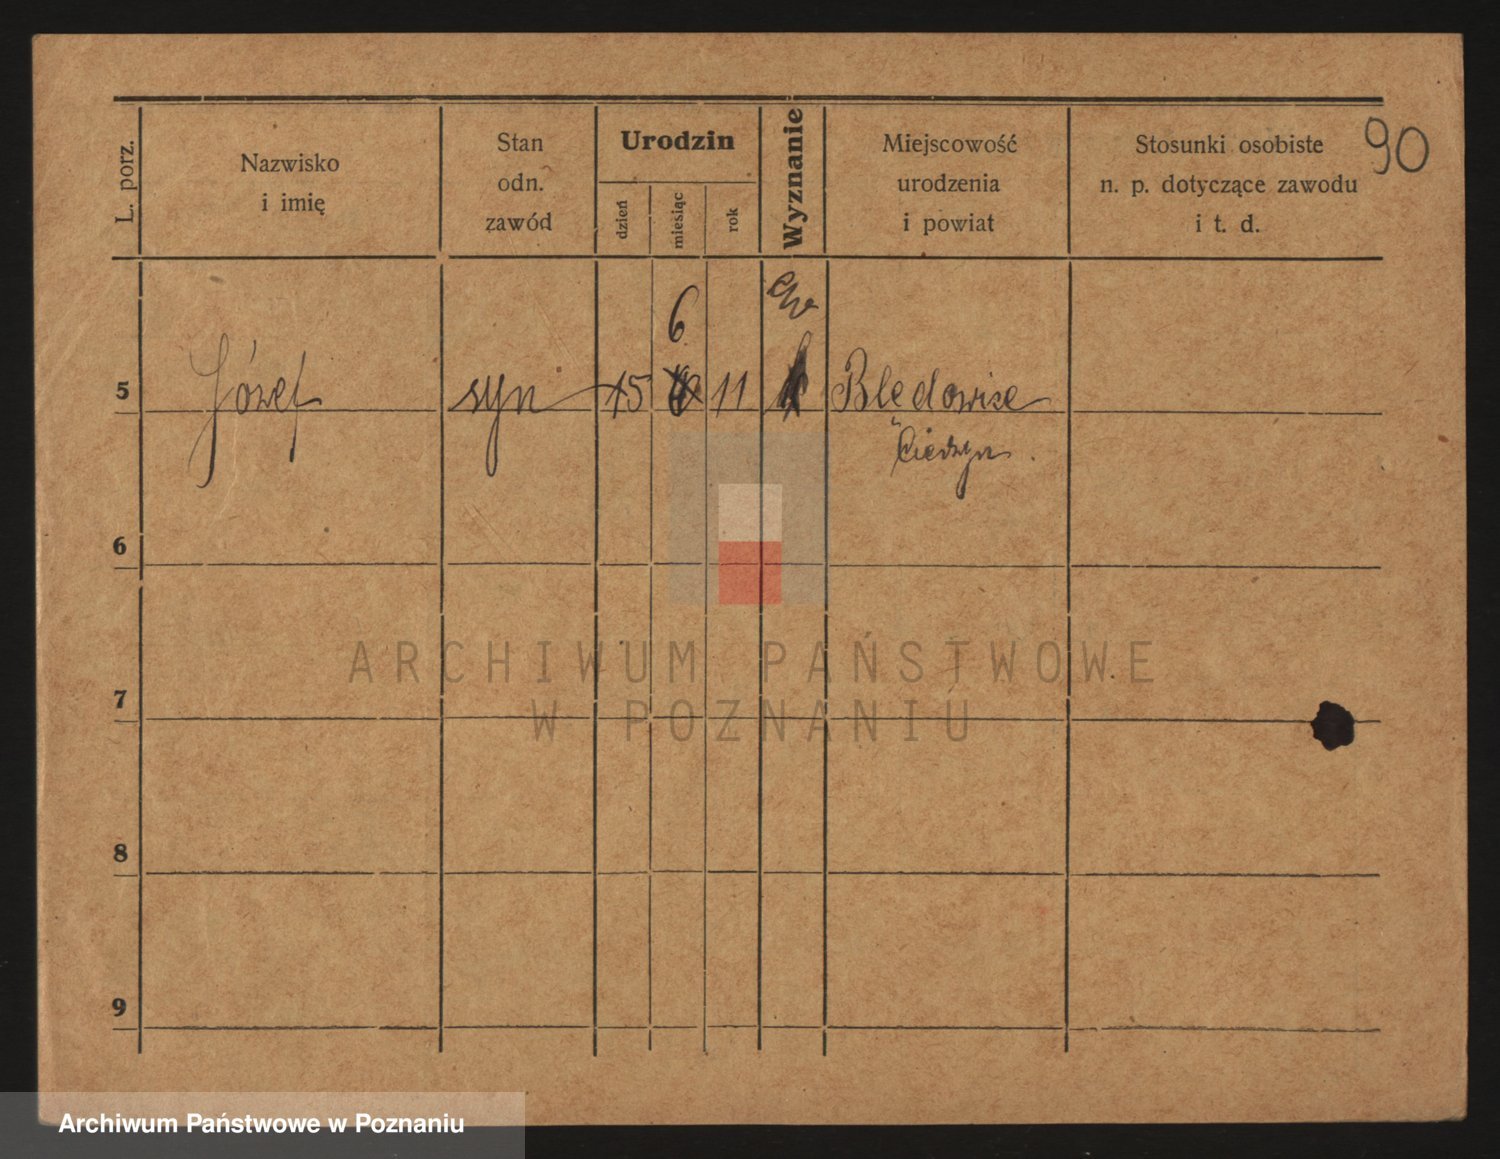 90
L. porz.
Nazwisko
i imię
Stan
odn.
zawód
Urodzin
dzień
miesiąc
rok
Wyznanie
Miejscowość
urodzenia
i powiat
Stosunki osobiste
n. p. dotyczące zawodu
i t. d.
6
5 Józef syn 15 11 Bledowice
6
7
8
9
ARCHIWUM PAŃSTWOWE
W POZNANIU
Archiwum Państwowe w Poznaniu